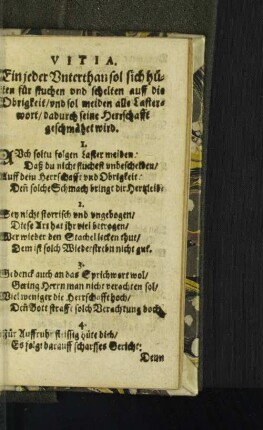 VITIA.
Ein jeder Vnterthan sol sich hü-
ten für fluchen vnd schelten auff die
Obrigkeit/ vnd sol meiden alle Laster-
wort/ dadurch seine Herrschafft
geschmähet wird.
1.
AVch soltu folgen Laster meiden:
Daß du nicht fluchest vnbescheiden/
Auff dein Herrschafft vnd Obrigkeit
Deñ solche Schmach bringt dir Hertzleid:
2.
Sey nicht storrisch vnd vngebogen/
Diese Art hat ihr viel betrogen/
Wer wieder den Stachel lecken thut/
Dem ist solch Wiederstrebn nicht gut.
3.
Gedenck auch an das Sprichwort wol/
Gering Herrn man nicht verachten sol/
Viel weniger die Herrschafft hoch/
Deñ Gott strafft solch Verachtung doch
4.
Für Auffruhr fleissig hüte dich/
Es folgt darauff scharffes Gericht:
Denn